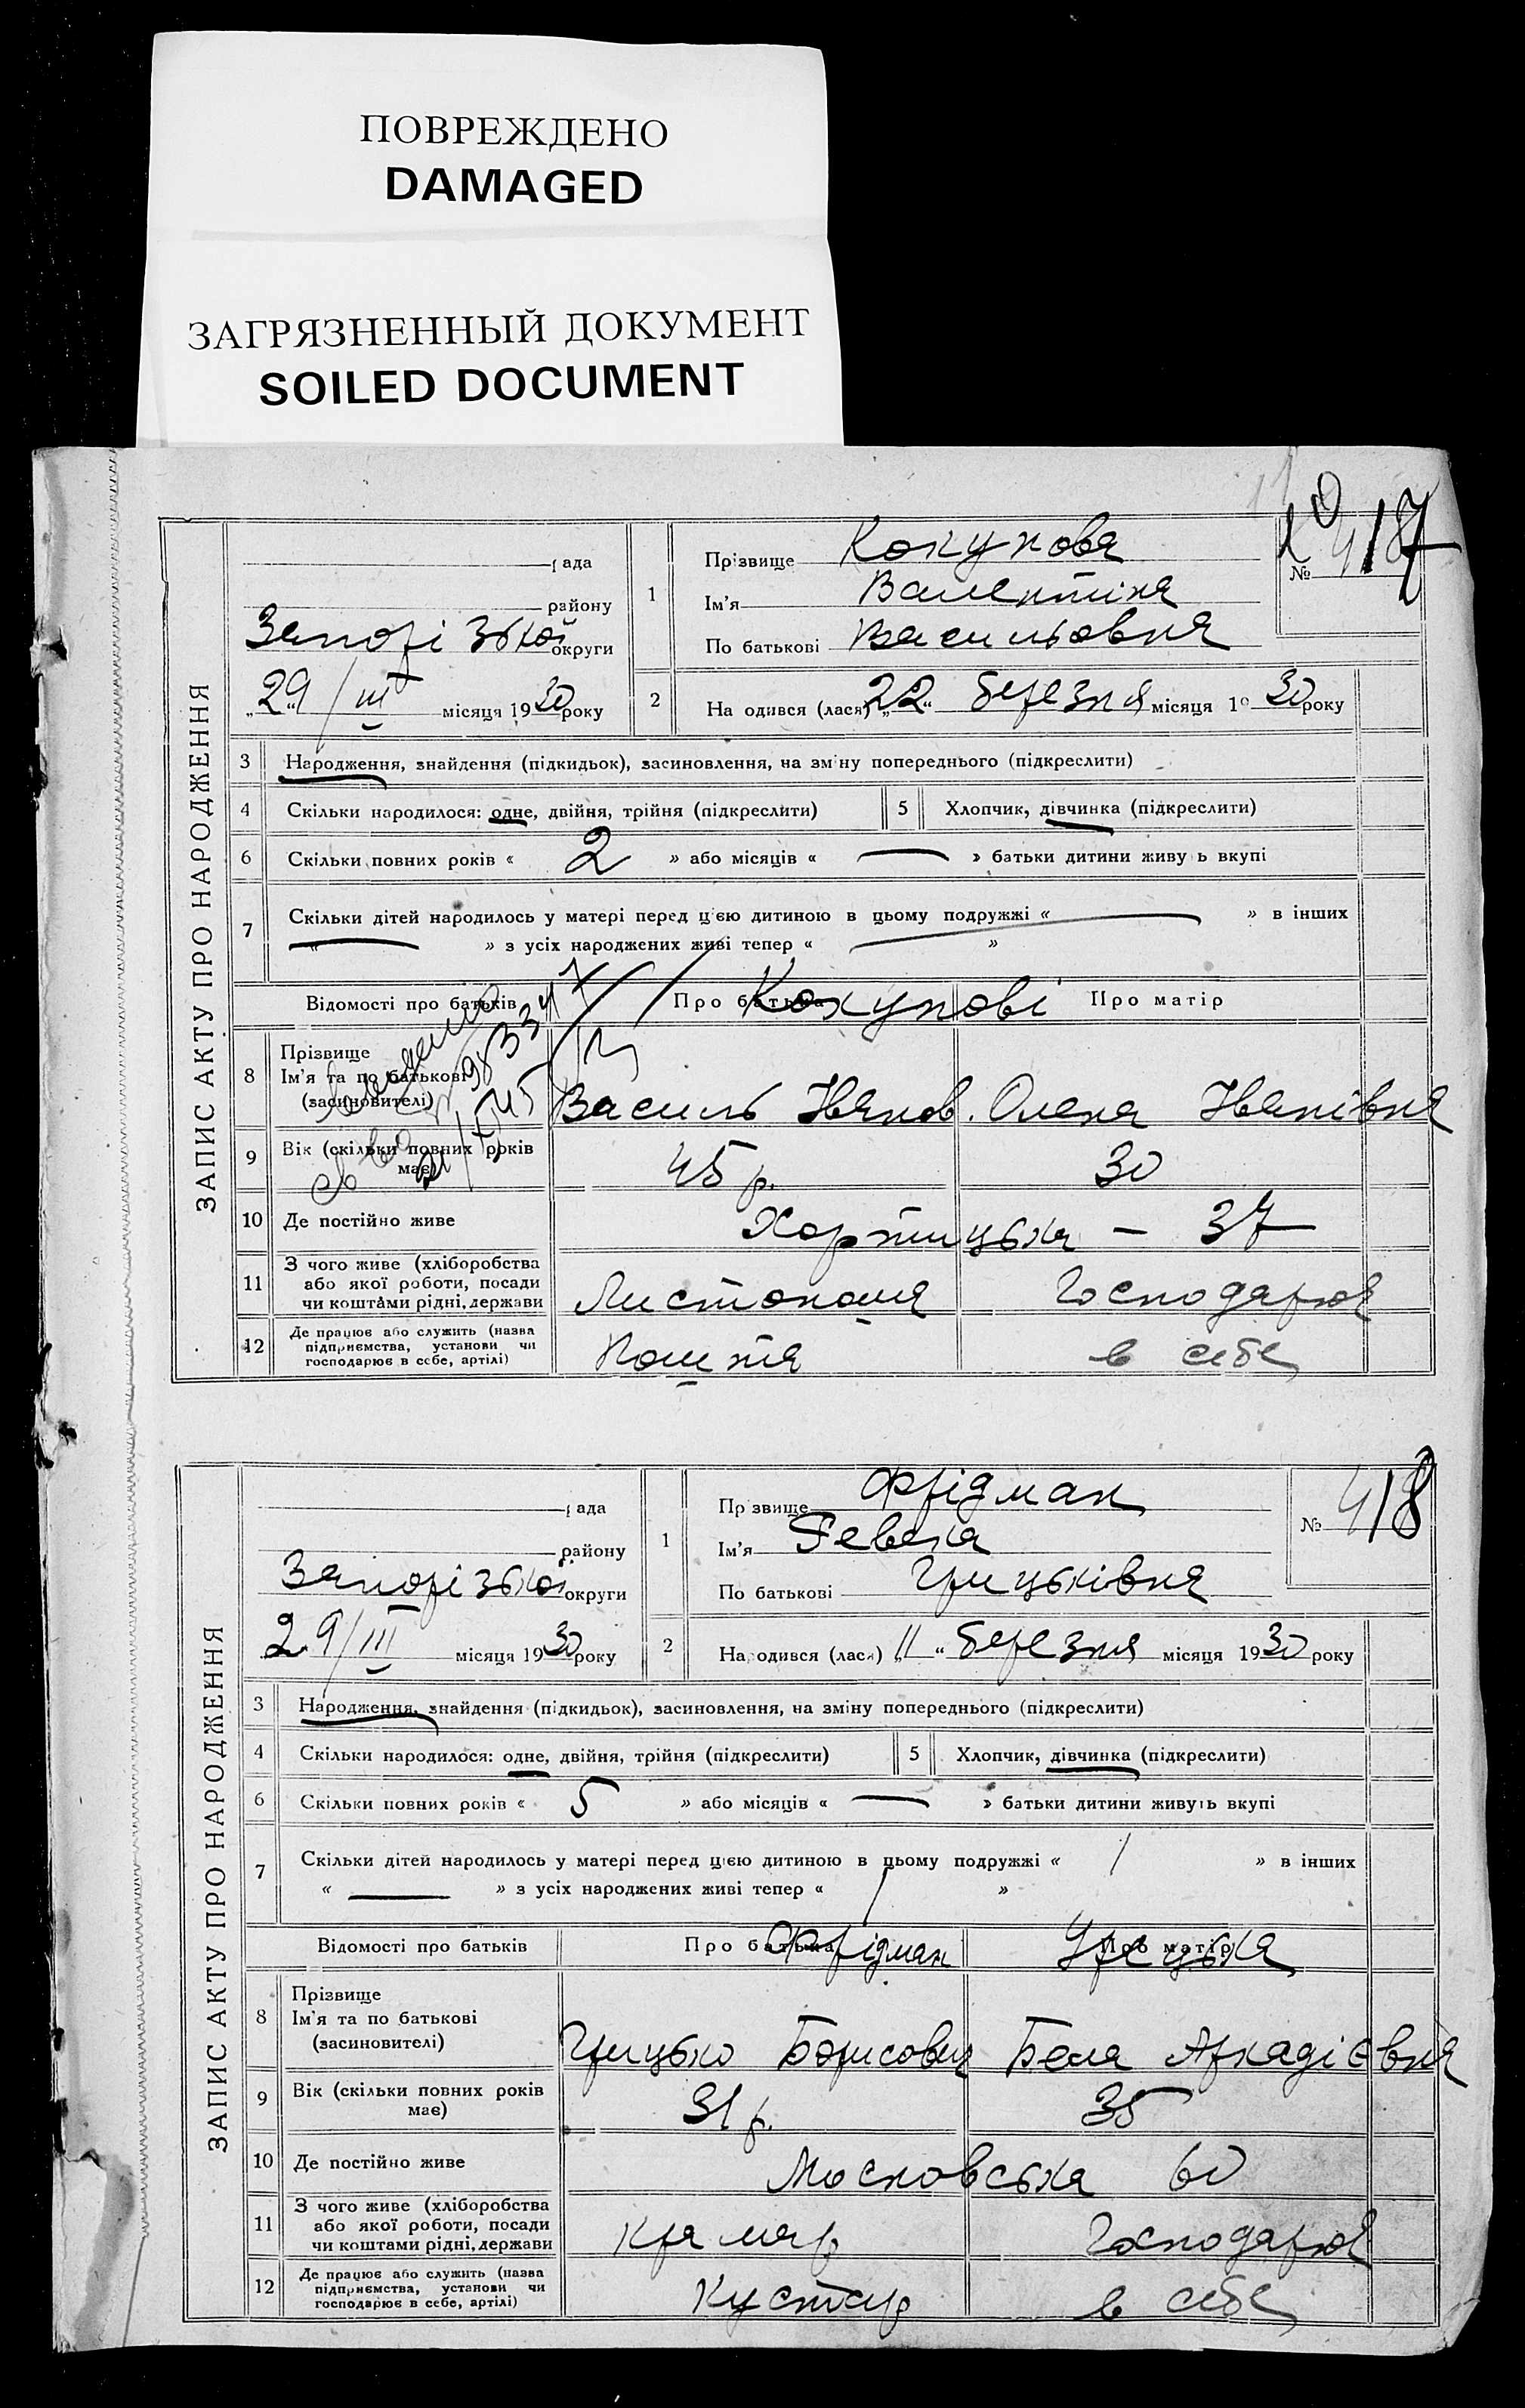 ПОВРЕЖДЕНО
DAMAGED
ЗАГРЯЗНЕННЫЙ ДОКУМЕНТ
SOILED DOCUMENT
ЗАПИС АКТУ ПРО НАРОДЖЕННЯ
рада
району
Запорізької округи
„29/III місяця 1930 року
1
Прізвище Кокунова
Ім'я Валентіна
По батькові Васильовна
№ 417
2
Народився (лася) „22“ березня місяця 1930 року
3 Народження, знайдення (підкидьок), засиновлення, на зміну попереднього (підкреслити)
4 Скільки народилося: одне, двійня, трійня (підкреслити)
5 Хлопчик, дівчинка (підкреслити)
6 Скільки повних років « 2 » або місяців « — » батьки дитини живуть вкупі
7 Скільки дітей народилось у матері перед цією дитиною в цьому подружжі « — » в інших
« — » з усіх народжених живі тепер « — »
Відомості про батьків Про батька Про матір
Кокунові
8 Прізвище
Ім'я та по батькові
(засиновителі)
Василь Іванов. Олена Іванівна
9 Вік (скільки повних років має) 45 р. 30
10 Де постійно живе Хортицька — 37
11 З чого живе (хліборобства
або якої роботи, посади
чи коштами рідні, держави
Листоноша Господарює
12 Де працює або служить (назва
підприємства, установи чи
господарює в себе, артілі)
Пошта в себе
ЗАПИС АКТУ ПРО НАРОДЖЕННЯ
рада
району
Запорізької округи
29/III місяця 1930 року
1
Прізвище Фрідман
Ім'я Ревека
По батькові Грицьківна
№ 418
2
Народився (лася) „11“ березня місяця 1930 року
3 Народження, знайдення (підкидьок), засиновлення, на зміну попереднього (підкреслити)
4 Скільки народилося: одне, двійня, трійня (підкреслити)
5 Хлопчик, дівчинка (підкреслити)
6 Скільки повних років « 5 » або місяців « — » батьки дитини живуть вкупі
7 Скільки дітей народилось у матері перед цією дитиною в цьому подружжі « 1 » в інших
« — » з усіх народжених живі тепер « 1 »
Відомості про батьків Про батька Про матір
Фрідман
8 Прізвище
Ім'я та по батькові
(засиновителі)
Грицько Борисович Беля Аркадієвна
9 Вік (скільки повних років має) 31 р. 35
10 Де постійно живе Московська 60
11 З чого живе (хліборобства
або якої роботи, посади
чи коштами рідні, держави
Крамар Господарює
12 Де працює або служить (назва
підприємства, установи чи
господарює в себе, артілі)
Кустар в себе